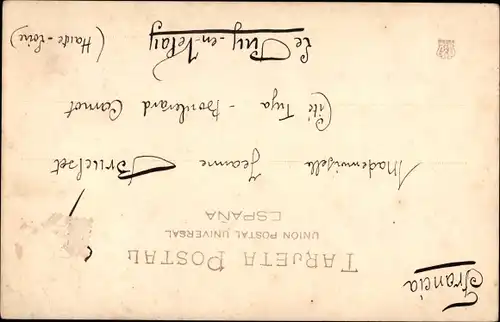 TARJETA POSTAL
UNION POSTAL UNIVERSAL
ESPAÑA
Francia
Mademoiselle Jeanne
Cité Tuja - Boulevard Carnot
Le Puy-en-Velay
(Haute-Loire)